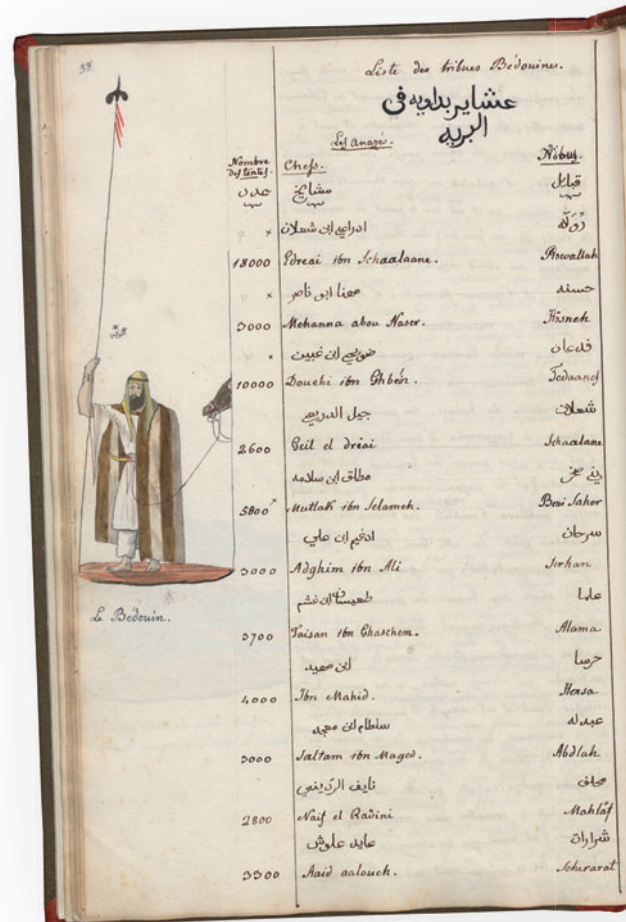 38.
Liste des tribus Bédouines.
عشاير بداويه فى
البريه
Les Anazés.
Nombre des tentes. Chefs. Tribus.
عدد مشايخ قبايل
ادراعي ابن شعلان
18000 Edreai ibn Schaalaane. Rowallah
× مهنا ابو ناصر حسنه
3000 Mehanna abou Naser. Hösneh
× ضويحي ابن غبين فدعان
10000 Douehi ibn Ghbeïn. Fedaanes
جيل الدريعي شعلان
2600 Geil el dréai Schaalane
مطلق ابن سلامه بني صخر
5800 × Mutlak ibn Selameh. Beni Saher
ادغيم ابن علي سرحان
3000 Adghim ibn Ali Serhan
ابن غشم علما
3700 Taisan ibn Ghaschem. Alama
ابن مهيد حرسا
4000 Ibn Mahid. Hersa
سلطام ابن معجد عبدله
3000 Saltam ibn Maged. Abdlah
نايف الرديني محلف
2800 Naif el Radini Mahläf
عايد علوش شرارات
3300 Aaid aalouch. Scherarat
Le Bédouin.